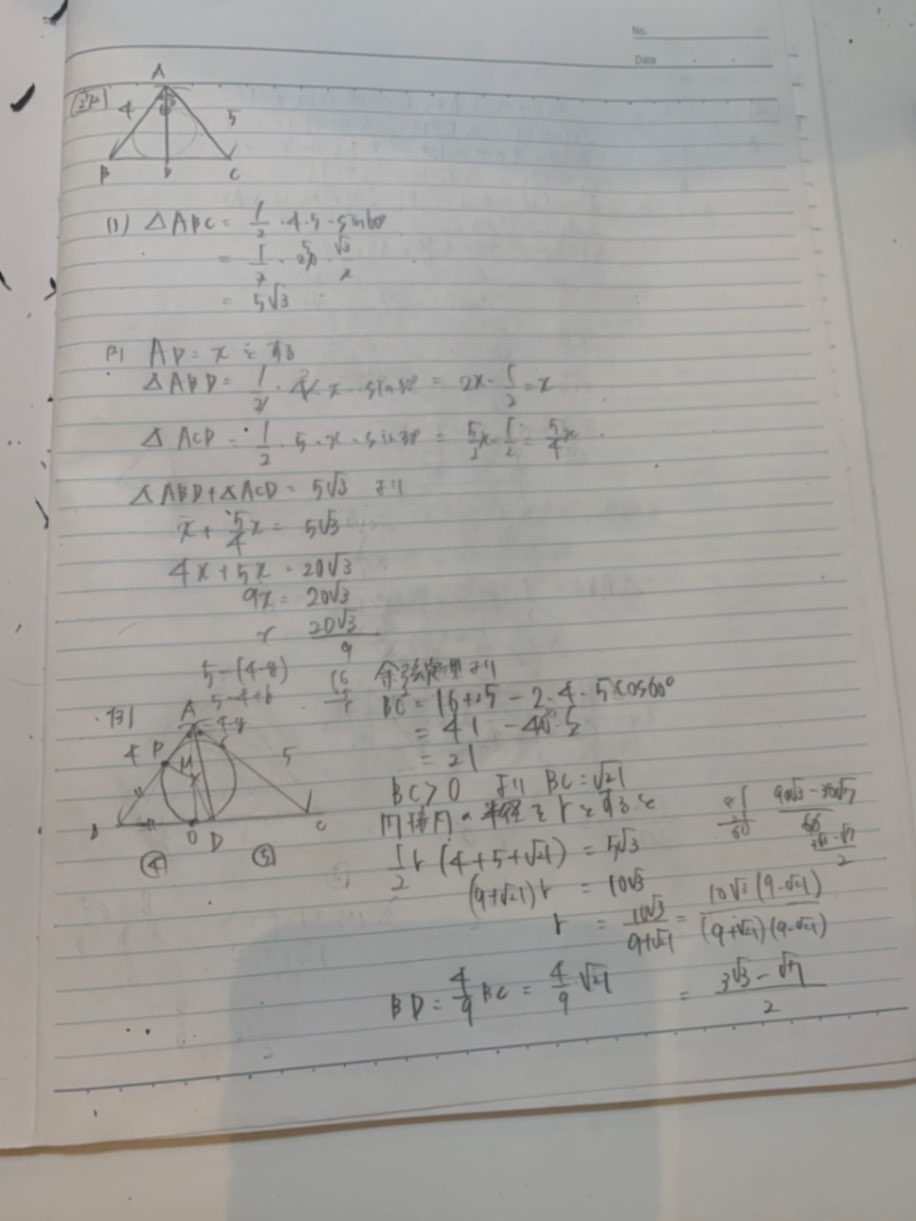 No.
Date
A
4
5
B
D
C
(1) △ABC = 1/2 ・4・5・sin60°
= 1/2 ・ 20 ・ √3/2
= 5√3
(2) AD = x とする
△ABD = 1/2・4・x・sin30° = 2x・1/2 = x
△ACD = 1/2・5・x・sin30° = 5/2x・1/2 = 5/4x
△ABD+△ACD = 5√3 より
x + 5/4x = 5√3
4x+5x = 20√3
9x = 20√3
x 20√3/9
5-(4-y)
5-4+y
(3)
A
4-y
4
P
M
5
B
O
D
C
④
⑤
余弦定理より
BC² = 16+25-2・4・5×cos60°
= 41 - 40・1/2
= 21
BC>0 より BC=√21
内接円の半径をrとすると
1/2r(4+5+√21) = 5√3
(9+√21)r = 10√3
r = 10√3/(9+√21) = 10√3(9-√21)/((9+√21)(9-√21))
81
21
60
90√3-30√7
60
3√3-√7
2
= (3√3-√7)/2
BD = 4/9 BC = 4/9・√21